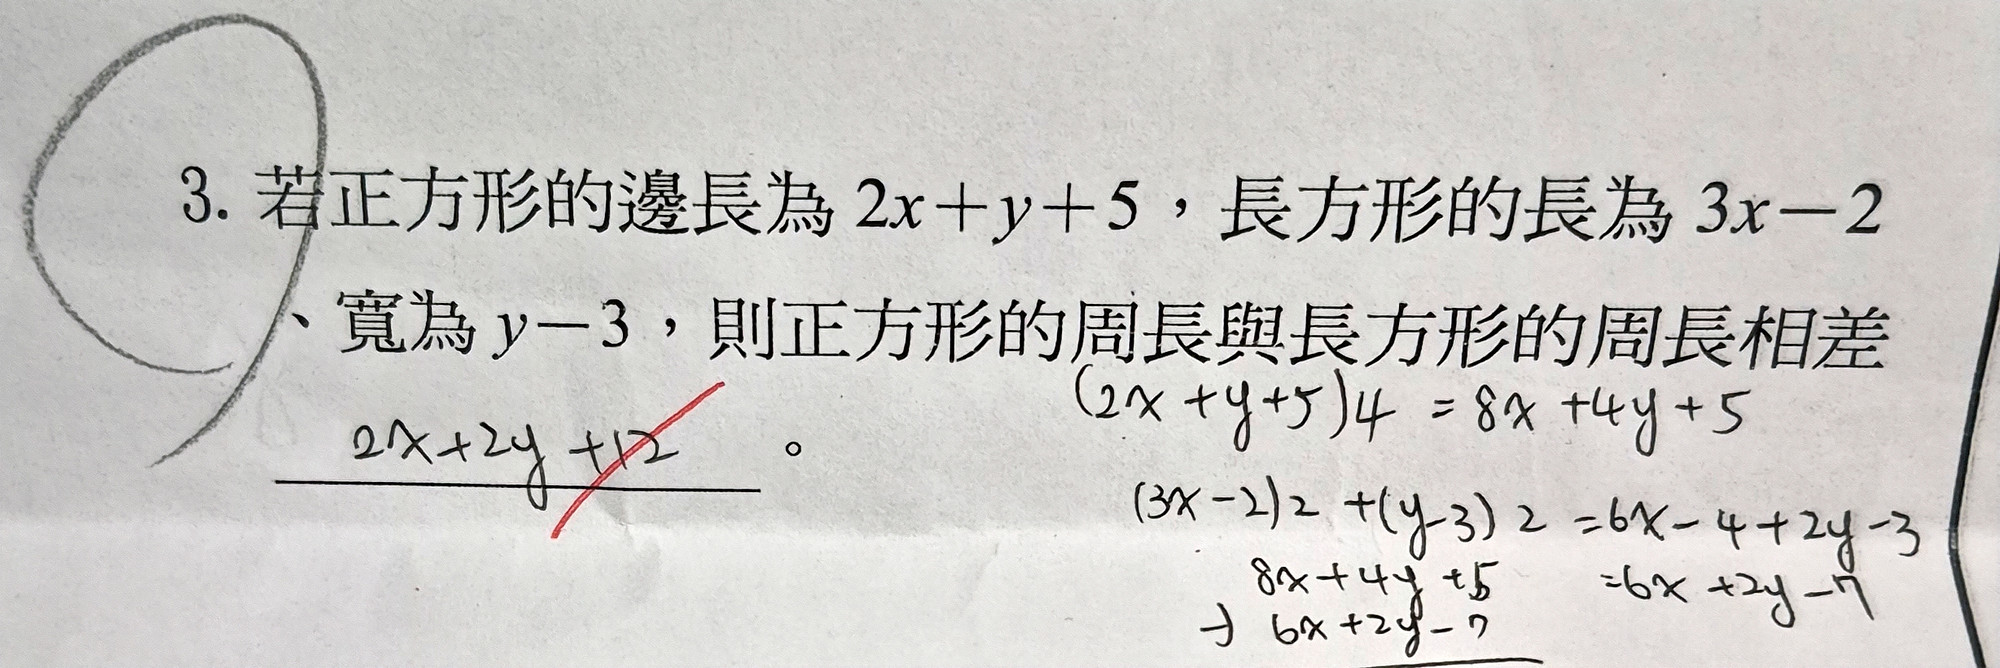 3. 若正方形的邊長為 2x+y+5,長方形的長為 3x-2
、寬為 y-3,則正方形的周長與長方形的周長相差
2x+2y+12 。
(2x+y+5)4 = 8x+4y+5
(3x-2)2+(y-3)2 = 6x-4+2y-3
8x+4y+5 =6x+2y-7
-) 6x+2y-7